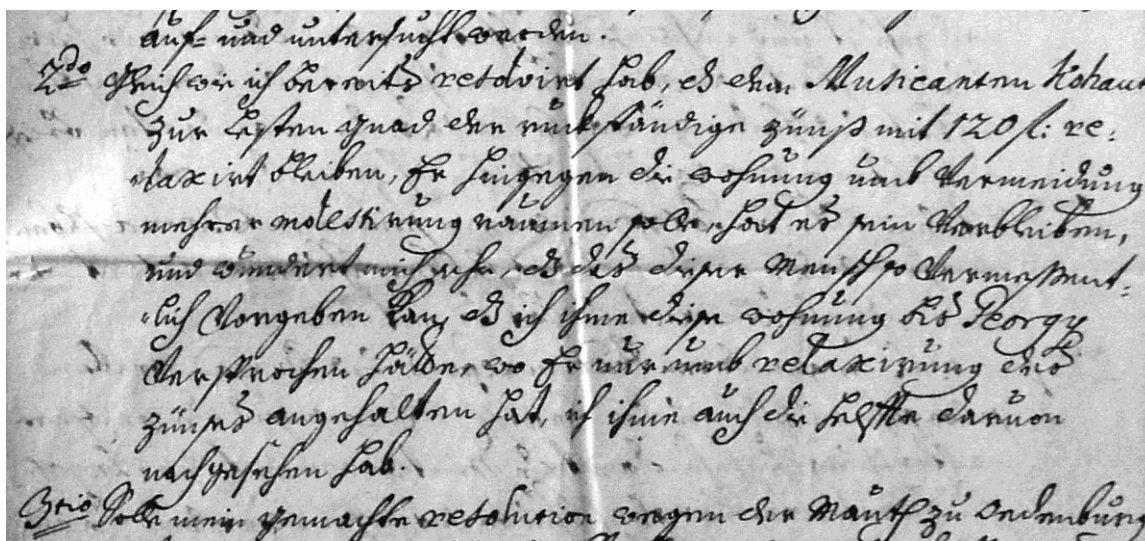 auf- und untersucht werden.
2do Gleich wie ich bereits resolvirt hab, dß dem Musicanten Kohaut
zur lesten gnad der rückständige zünß mit 120 f: re:
laxirt bleiben, Er hingegen die wohnung umb Vermeidung
mehrer molestirung raumen solle, hat es sein Verbleiben,
und wundert mich sehr, dß das dieser Mensch so Vermessent:
lich Vorgeben kan, dß ich ihme diese wohnung bis Georgy
Versprochen hätte, wo Er nur umb relaxirung des
zünses angehalten hat, ich ihme auch die helffte daruon
nachgesehen hab.
3tio Solle mein gemachte resolution wegen der Mauth zu Oedenburg